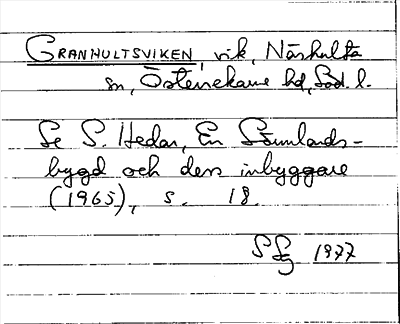 GRANHULTSVIKEN, vik, Näshulta
sn, Österrekarne hd, Söd. l.
Se S. Hedar, En Sörmlands-
bygd och dess inbyggare
(1965), s. 18.
1977